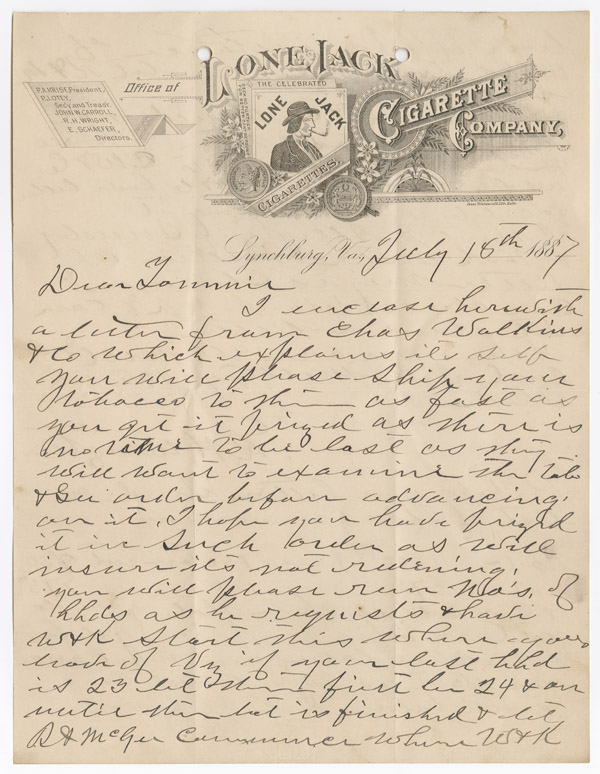 P.A. KRISE, President.
P.J. OTEY,
Sec'y and Treas'r.
JOHN W. CARROLL,
R. H. WRIGHT,
E. SCHAEFER,
Directors.
Office of
LONE JACK
THE CELEBRATED
LONE JACK
CIGARETTES.
CIGARETTE
COMPANY,
Lynchburg, Va., July 18th 1887
Dear Tommie
I enclose herewith
a letter from Chas Watkins
& Co which explains its self
you will please ship your
Tobacco to them as fast as
you get it prized as there is
no time to be lost as they
will want to examine the Tob
& See order before advancing
on it. I hope you have prized
it in such order as will
insure its not redening.
you will please run No's. of
hhds as he requests & have
W&K start this where you
leave off if your last hhd
is 23 let them first be 24 & on
until their lot is finished & let
McGee Commence where W&K